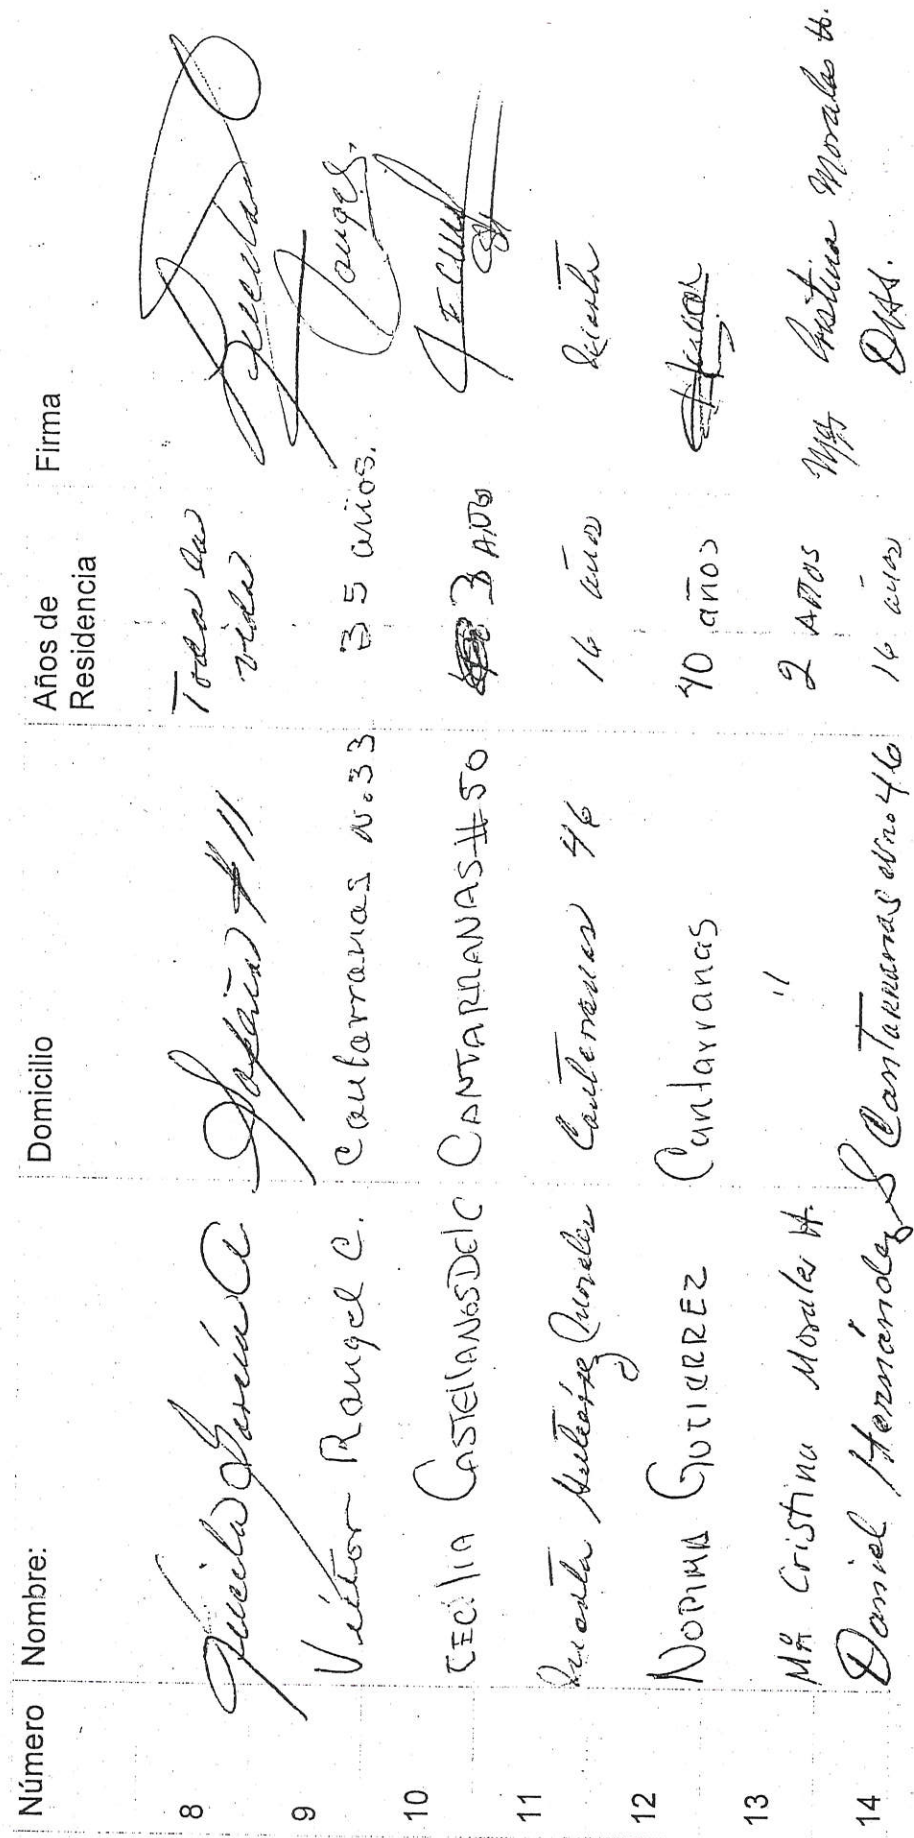 Número Nombre: Domicilio Años de Residencia Firma
8 García A #11 Toda la vida
9 Víctor Rangel C. Cantarranas No. 33 35 años. Rangel.
10 CECIlIA CASTEllANOS DE C CANTARRANAS #50 3 AÑOS
11 Morales Cantarranas 46 16 años
12 NORMA GUTIERREZ Cantarranas años
13 Mª Cristina Morales H. " 2 AÑOS Mª Cristina Morales H.
14 Daniel Hernández S Cantarranas No. 46 16 años DHS.